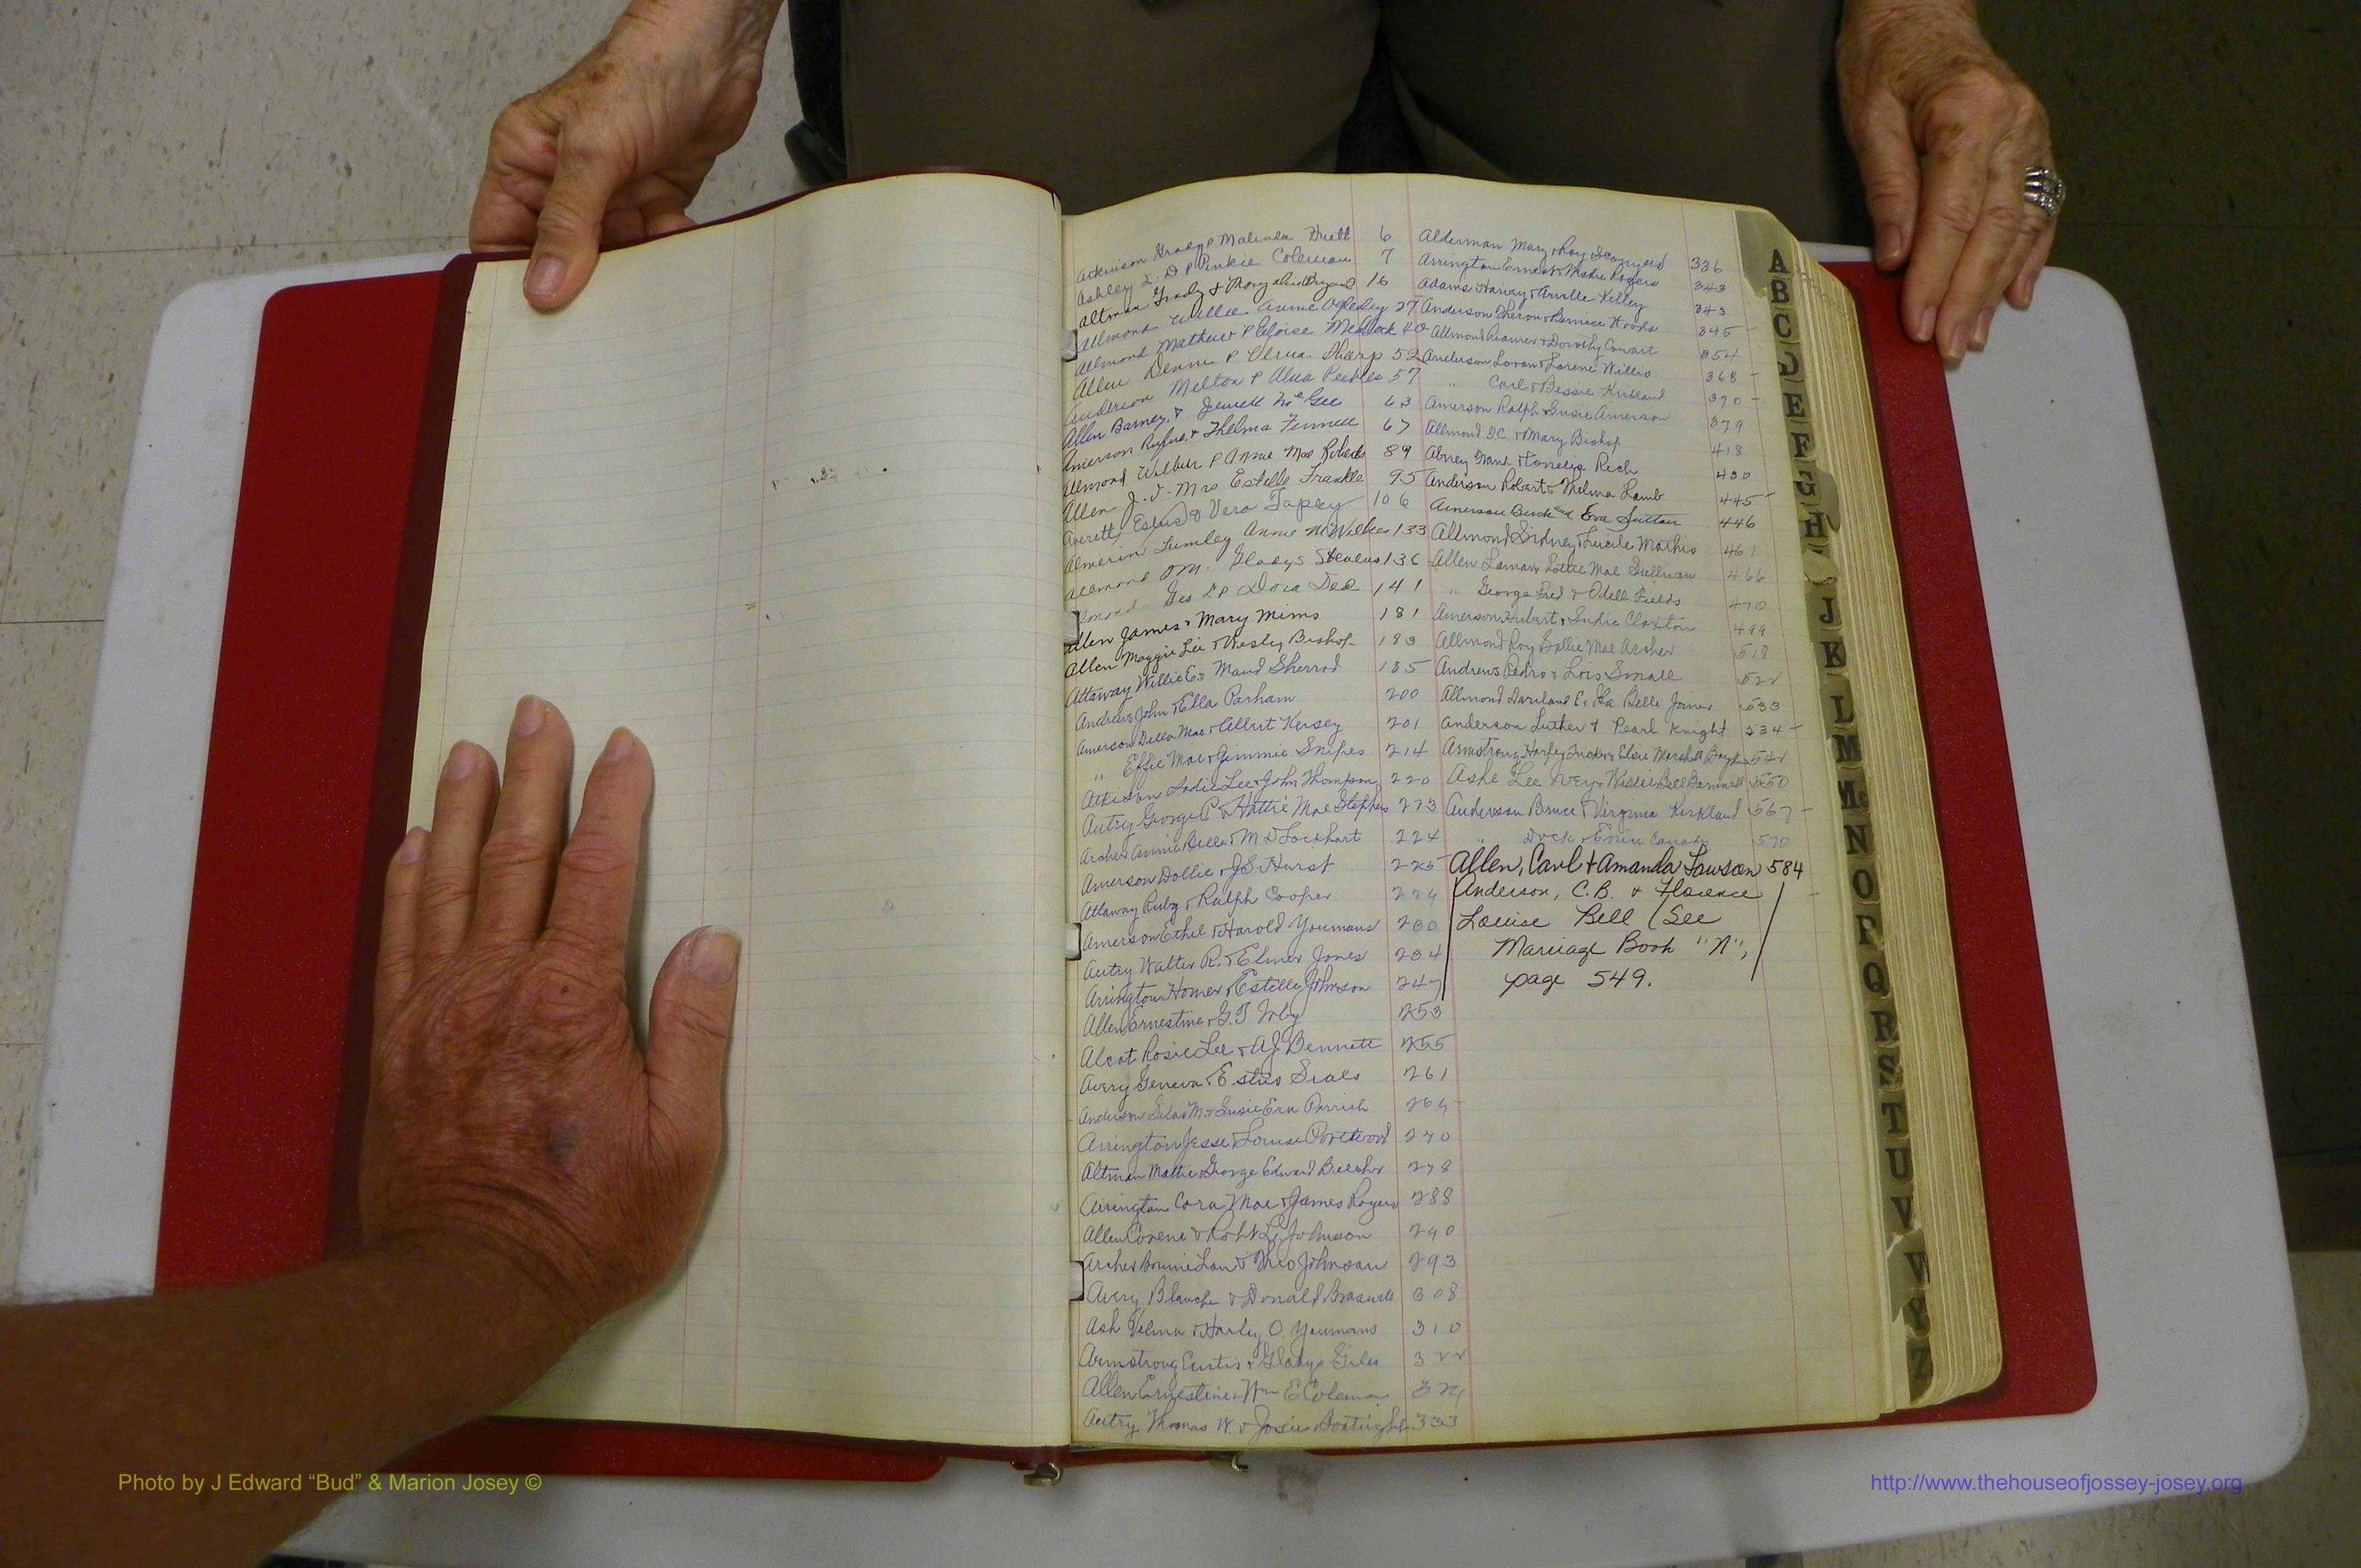 Atkinson Grady & Malinda Hutt 6
Ashley L. D & Pinkie Coleman 7
Altman Grady & Mary Alice Bryant 16
Allmond Willie Annie Oglesby 27
Allmond Mathew & Eloise Medlock 40
Allen Dennis & Verna Sharp 52
Anderson Melton & Alva Peebles 57
Allen Barney & Jewell McGee 63
Amerson Rufus & Thelma Fennell 67
Allmond Wilbur & Annie Mae Roberts 89
Allen J. J. Mrs Estelle Franklin 95
Averett Estus & Vera Tapley 106
Almerin Lumley Annie McWilkes 133
Allmond O.M. Gladys Stevens 136
Geo L & Dora Dee 141
Allen James & Mary Mims 181
Allen Maggie Lee & Wesley Bishop 183
Attaway Willie E. & Maud Sherrod 185
Andrews John & Ella Parham 200
Amerson Della Mae & Albert Kersey 201
" Effie Mae & Jimmie Snipes 214
Atkison Sadie Lee & John Thompson 220
Autry George P. & Hattie Mae Stephens 223
Archer Annie Belle & M D Lockhart 224
Amerson Dollie & J.S. Hurst 225
Attaway Ruby & Ralph Cooper 229
Amerson Ethel & Harold Youmans 230
Autry Walter R. & Elmer Jones 234
Arrington Homer & Estelle Johnson 247
Allen Ernestine & G.T. Irby 253
Alcot Rosie Lee & AJ Bennett 255
Avery Geneva & Estus Seals 261
Anderson Silas M. & Susie Era Parrish 265
Arrington Jesse & Louise Portwood 270
Altman Mattie & George Edward Beecher 278
Arrington Cora Mae & James Rogers 288
Allen Corene & Robt L. Johnson 290
Archer Bonnie Lou & Theo Johnson 293
Avery Blanche & Donald Braswell 308
Ash Velma & Harley O. Youmans 310
Armstrong Curtis & Gladys Giles 322
Allen Ernestine & Wm E Coleman 324
Autry Thomas W. & Josie Boatright 333
Alderman Mary & Roy Scanyers 336
Arrington Ernest & Madie Rogers 343
Adams Harvey & Arvilla Kelley 343
Anderson Theron & Bernice Woods 345
Allmond Reamer & Dorothy Cowart 354
Anderson Loran & Lorene Willis 368
" Carl & Bessie Kirkland 370
Amerson Ralph & Susie Amerson 379
Allmond D.C. & Mary Bishop 418
Abney Grant & Cornelia Rich 430
Anderson Robert & Thelma Lamb 445
Amerson Buck and Eva Sutton 446
Allmond Sidney & Lucile Mathis 461
Allen Lamar & Lottie Mae Sullivan 466
" George Fred & Odell Fields 470
Amerson Hubert & Indie Claxton 499
Allmond Roy & Sallie Mae Archer 518
Andrews Pedro & Lois Small 522
Allmond Dariland E. & Ila Belle Joiner 533
Anderson Luther & Pearl Knight 534
Armstrong, Harley Tucker & Elsie Marshall Boyd 544
Ashe Lee Wey & Kissie Bell Bammell 550
Anderson Bruce & Virginia Kirkland 567
" Dock & Ennie Canady 570
Allen, Carl & Amanda Lawson 584
Anderson, C.B. & Florence
Louise Bell (See
Marriage Book "N",
page 549.
A
B
C
D
E
F
G
H
J
K
L
M
Mc
N
O
P
Q
R
S
T
U
V
W
Y
Z
Photo by J Edward “Bud” & Marion Josey ©
http://www.thehouseofjossey-josey.org